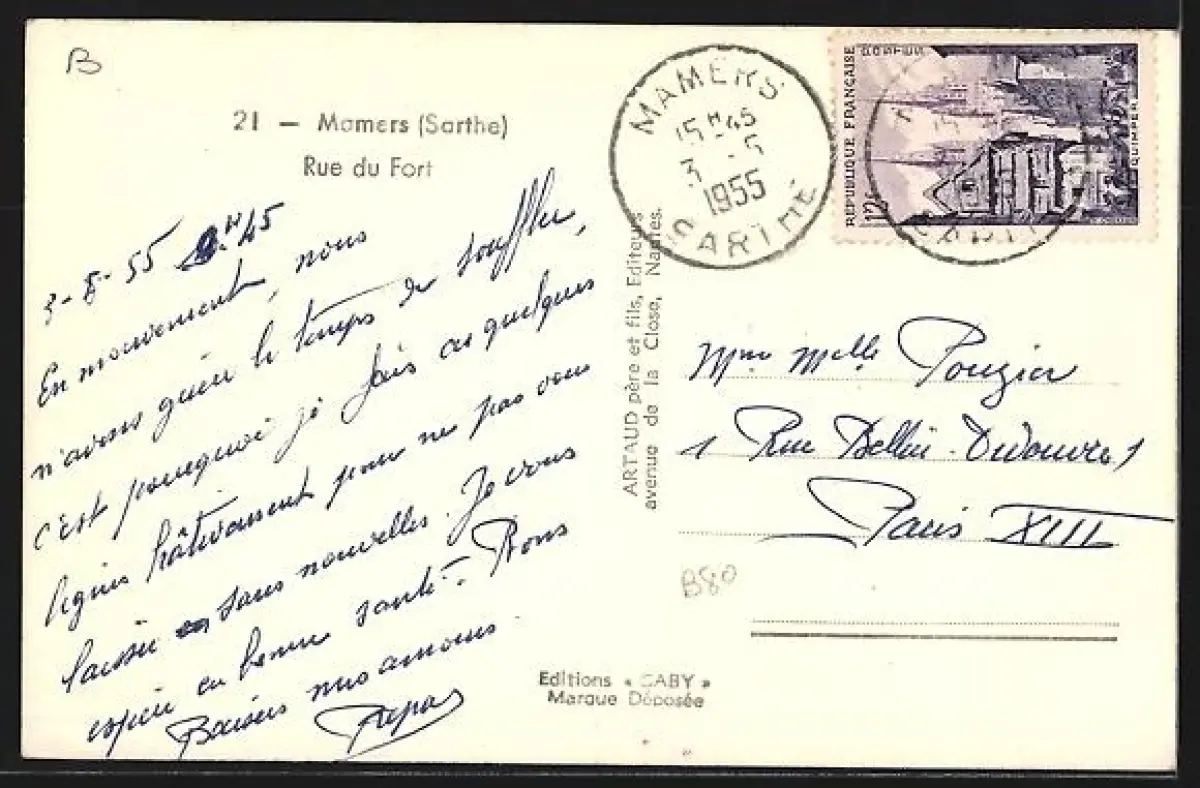 B
21 — Mamers (Sarthe)
Rue du Fort
3-5-55 9.H45
En mouvement, nous
n'avons guère le temps de souffler,
c'est pourquoi je fais ces quelques
lignes hâtivement pour ne pas vous
laisser sans nouvelles. Je vous
espère en bonne santé. Bons
Baisers mes amours.
Papa
MAMERS
15H45
3 -5
1955
SARTHE
RÉPUBLIQUE FRANÇAISE
12f
QUIMPER
ARTAUD père et fils, Editeurs
avenue de la Close, Nantes.
Mme Melle Pougier
1 Rue Dellui-Divouvres
Paris XIII
B80
Editions « GABY »
Marque Déposée